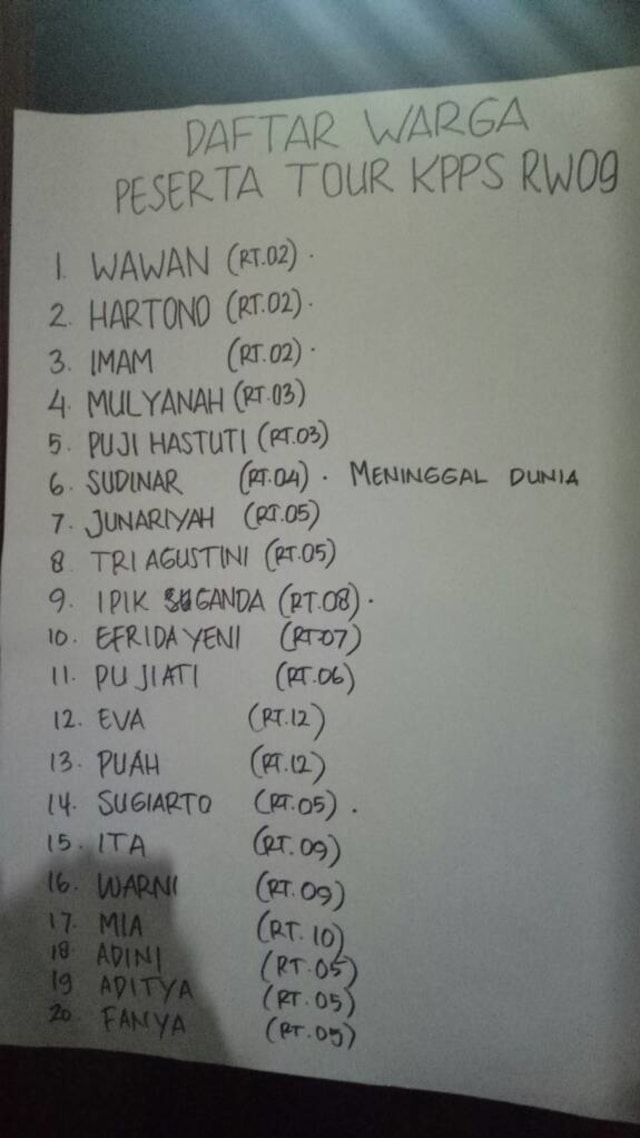 DAFTAR WARGA
PESERTA TOUR KPPS RW09
1. WAWAN (RT.02) .
2. HARTONO (RT.02) .
3. IMAM (RT.02) .
4. MULYANAH (RT.03)
5. PUJI HASTUTI (RT.03)
6. SUDINAR (RT.04) . MENINGGAL DUNIA
7. JUNARIYAH (RT.05)
8. TRI AGUSTINI (RT.05)
9. IPIK SUGANDA (RT.08) .
10. EFRIDA YENI (RT.07)
11. PUJIATI (RT.06)
12. EVA (RT.12)
13. PUAH (RT.12)
14. SUGIARTO (RT.05) .
15. ITA (RT.09)
16. WARNI (RT.09)
17. MIA (RT.10)
18. ADINI (RT.05)
19 ADITYA (RT.05)
20. FANYA (RT.05)